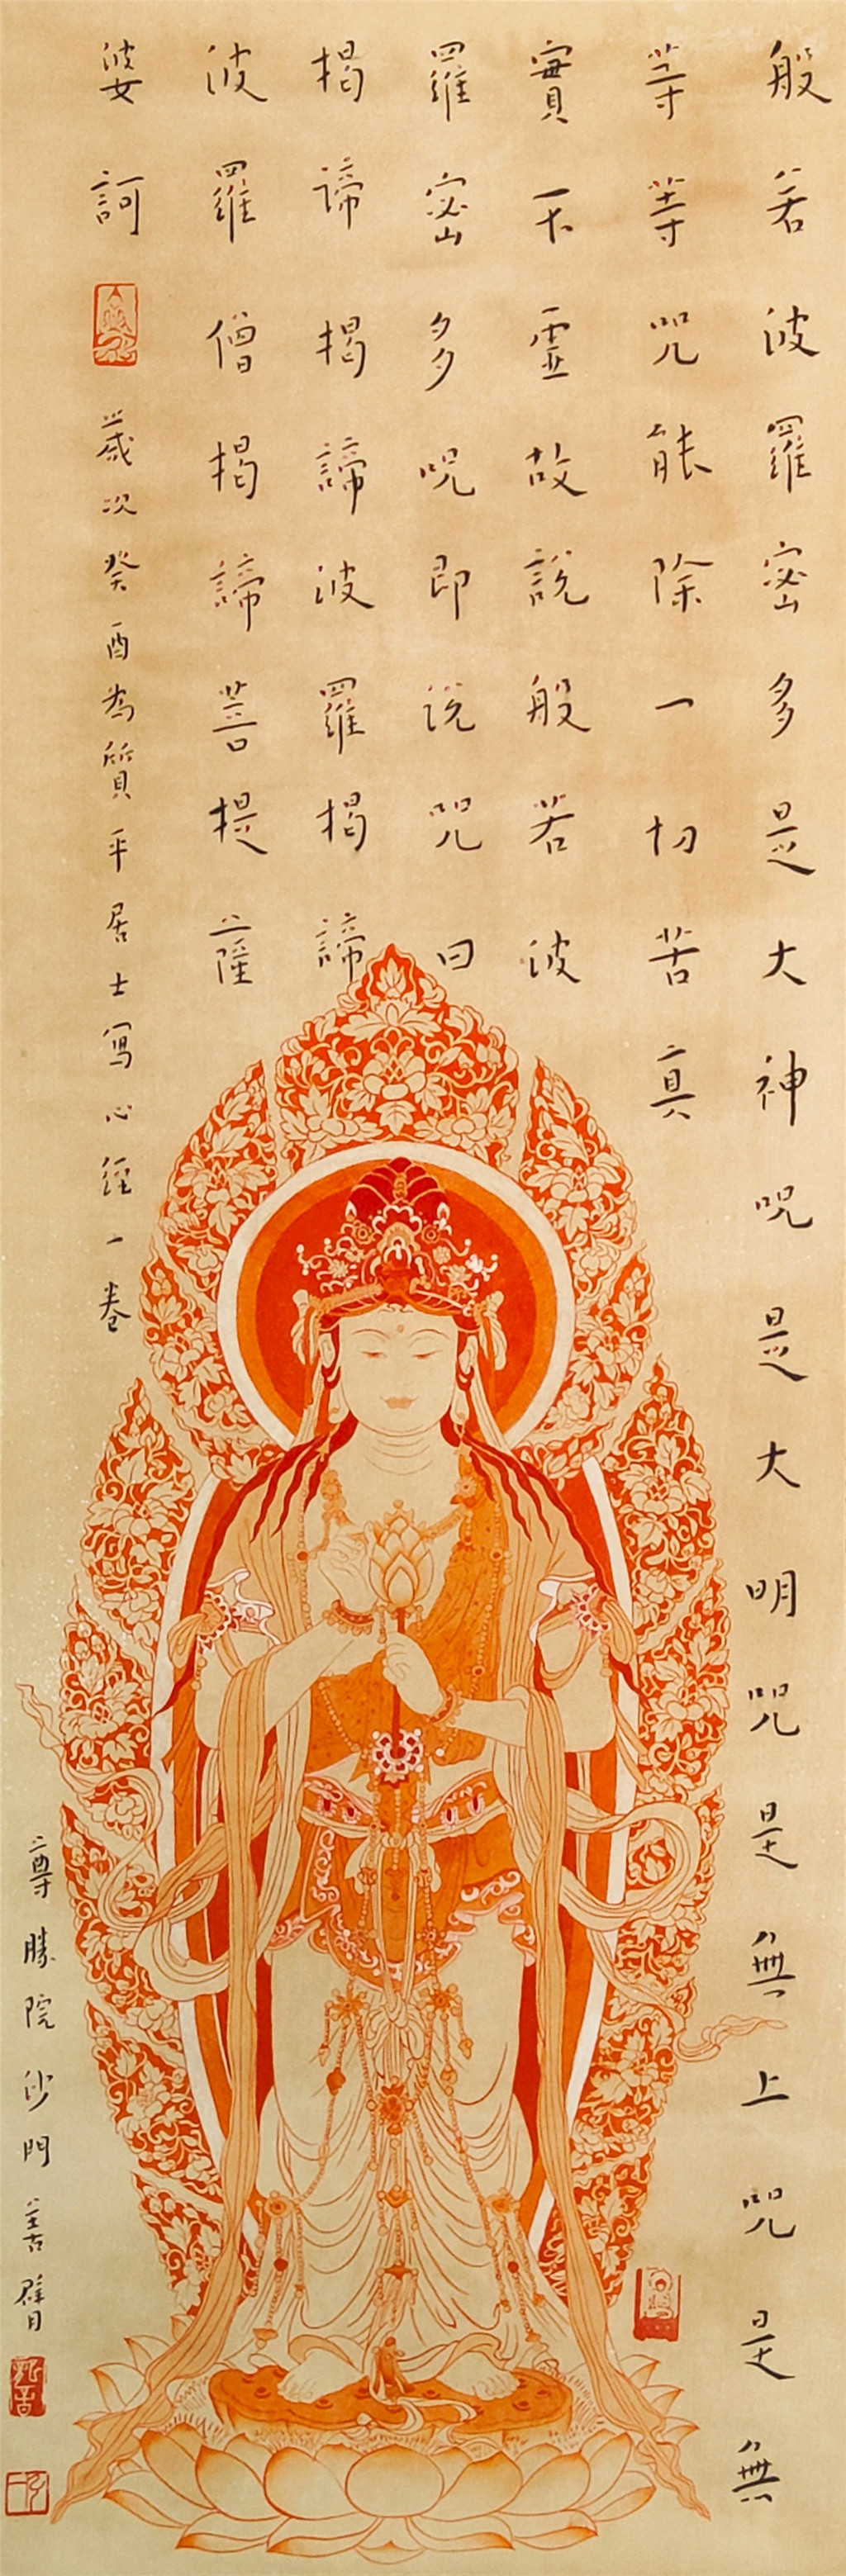 般若波羅密多是大神呪是大明咒是無上咒是無
等等咒能除一切苦真
實不虛故說般若波
羅密多呪即說咒曰
揭諦揭諦波羅揭諦
波羅僧揭諦菩提薩
婆訶
歲次癸酉為質平居士寫心經一卷
尊勝院沙門善臂